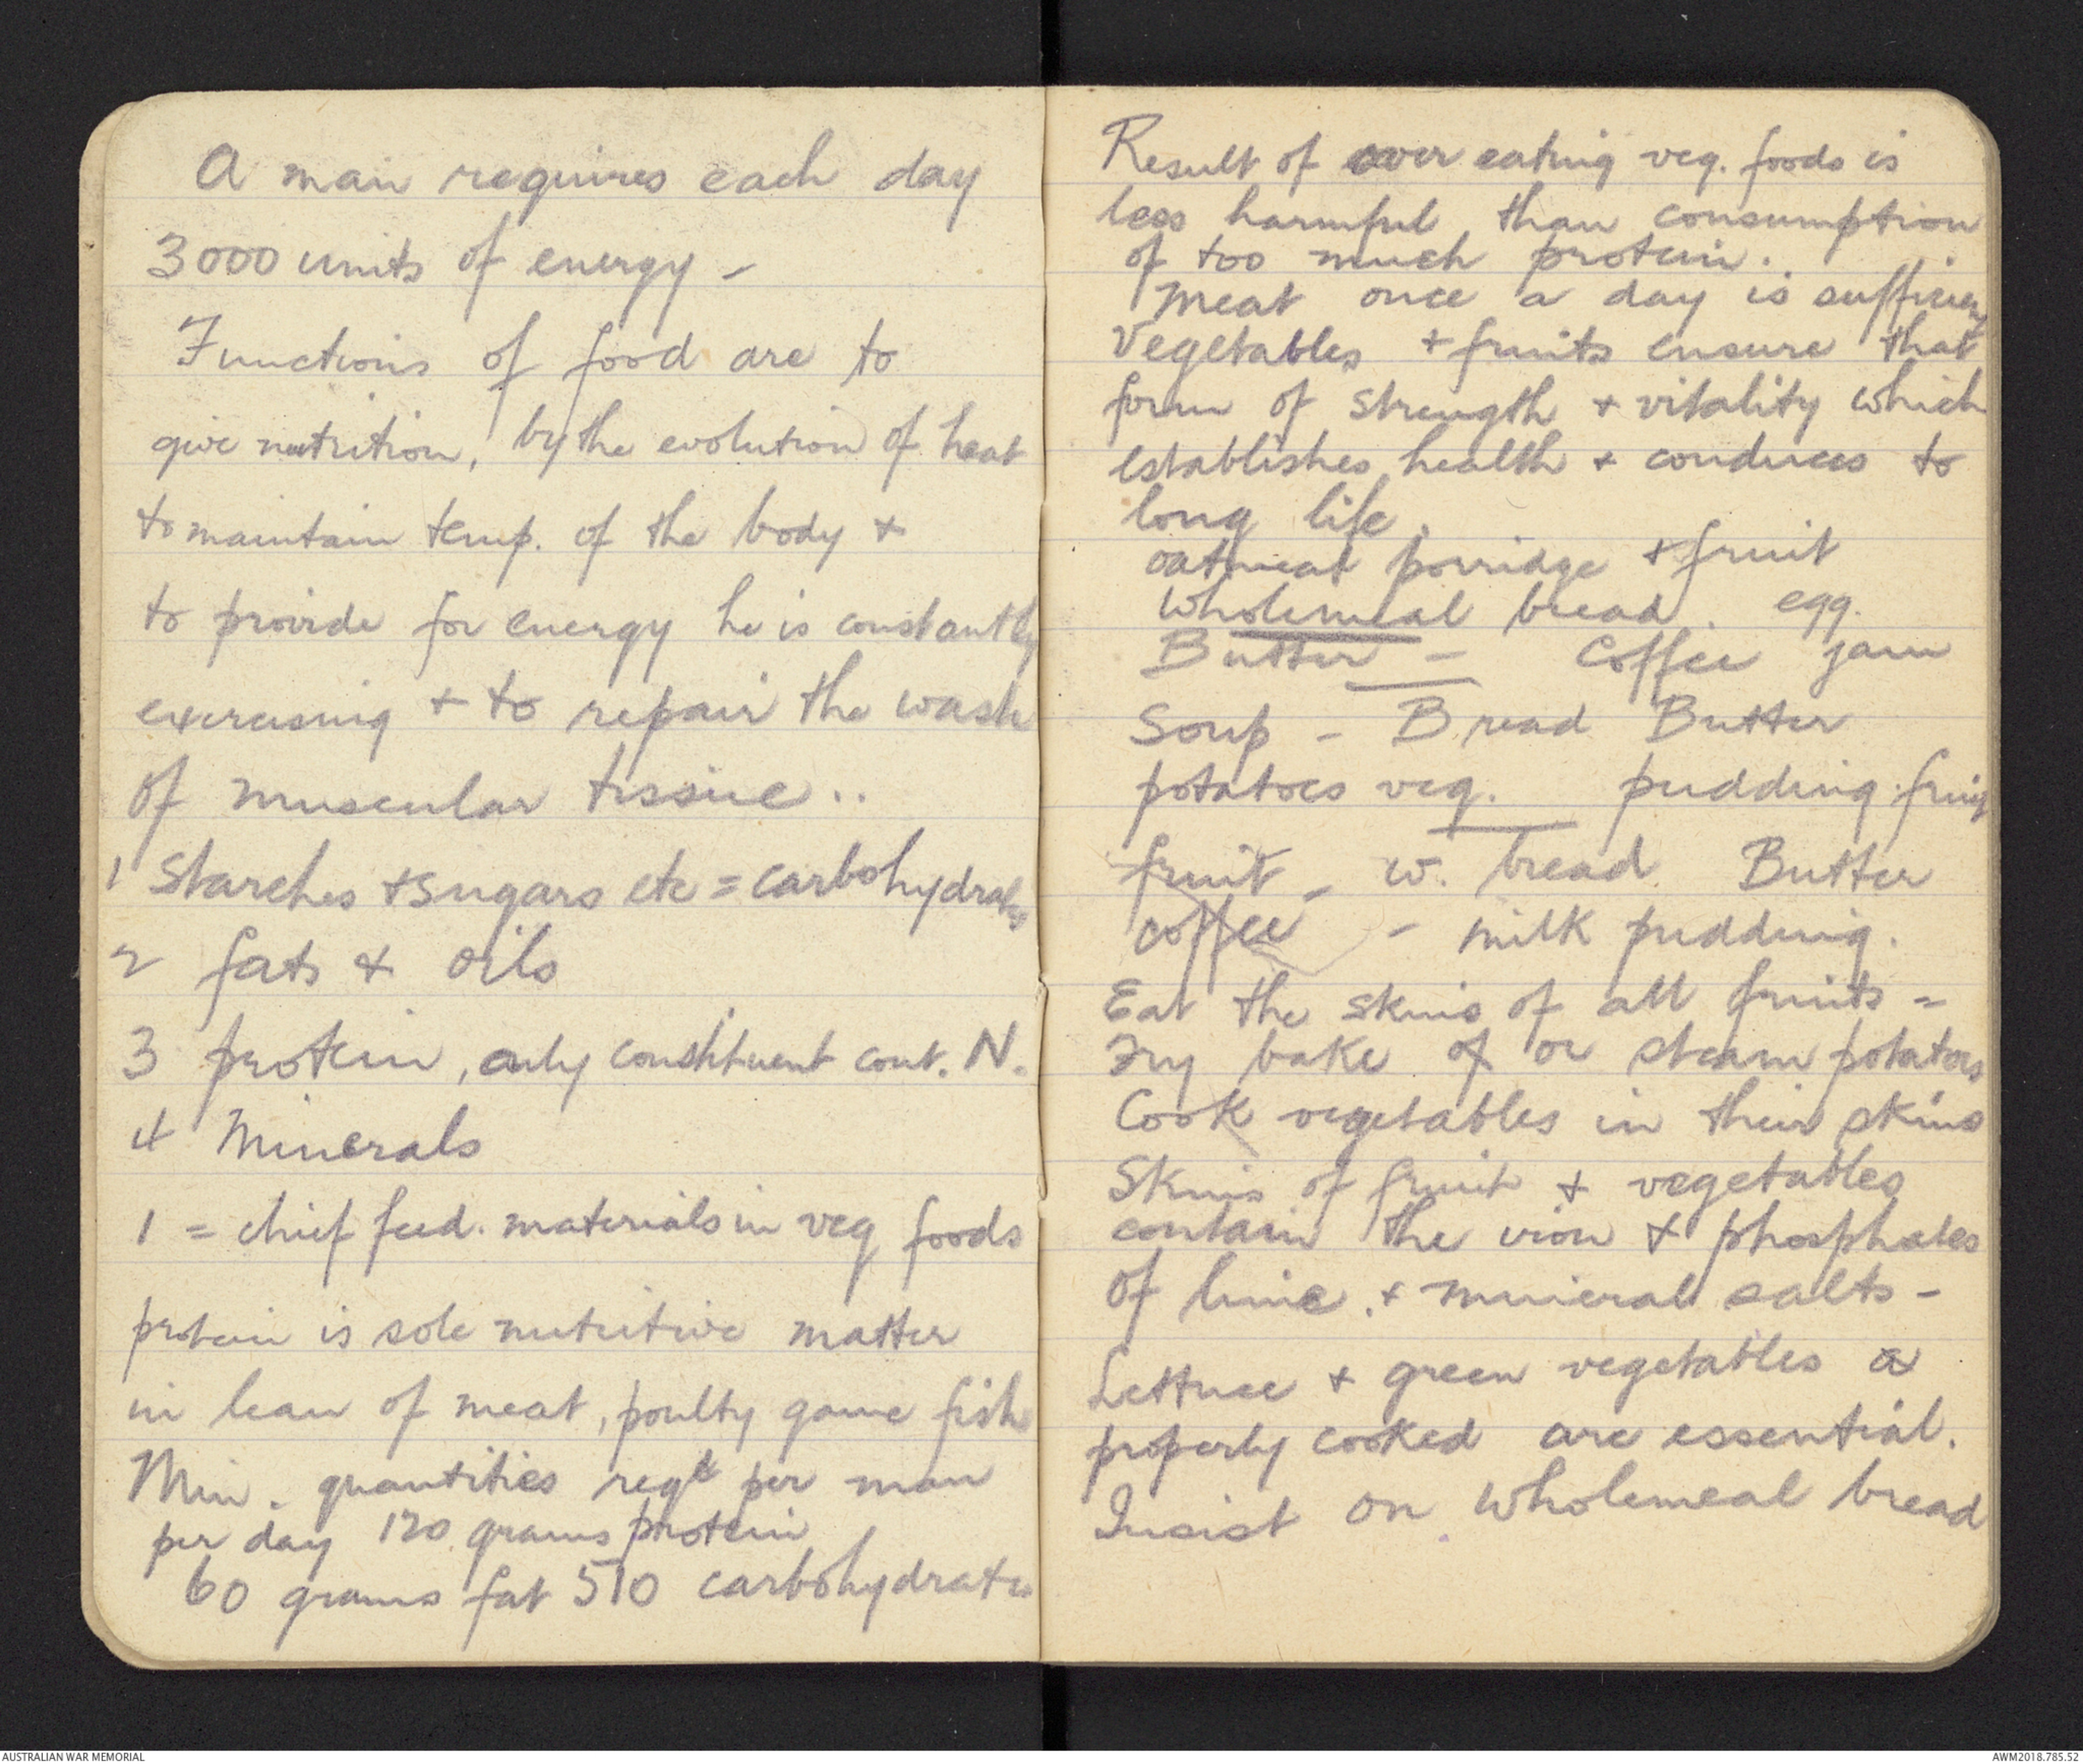 A man requires each day
3000 units of energy -
Functions of food are to
give nutrition, by the evolution of heat
to maintain temp. of the body +
to provide for energy he is constantly
exercising + to repair the waste
of muscular tissue..
1 Starches + sugars etc = carbohydrates
2 fats & oils
3 protein, only constituent cont. N.
4 Minerals
1 = chief food. materials in veg foods
protein is sole nutritive matter
in lean of meat, poulty game fish
Min. quantities reqd per man
per day 120 grams protein
60 grams fat 510 carbohydrates
Result of over eating veg. foods is
less harmful than consumption
of too much protein.
Meat once a day is sufficient
Vegetables + fruits ensure that
form of strength + vitality which
establishes health + conduces to
long life.
oatmeal porridge + fruit
wholemeal bread. egg.
Butter - Coffee jam
Soup - Bread Butter
potatoes veg. pudding. fruit
fruit - w. bread. Butter
coffee - milk pudding.
Eat the skins of all fruits =
Try bake of or steam potatoes
Cook vegetables in their skins
Skins of fruit & vegetables
contain the iron & phosphates
of lime. + mineral salts -
Lettuce + green vegetables a
properly cooked are essential.
Insist on wholemeal bread
AUSTRALIAN WAR MEMORIAL
AWM2018.785.52